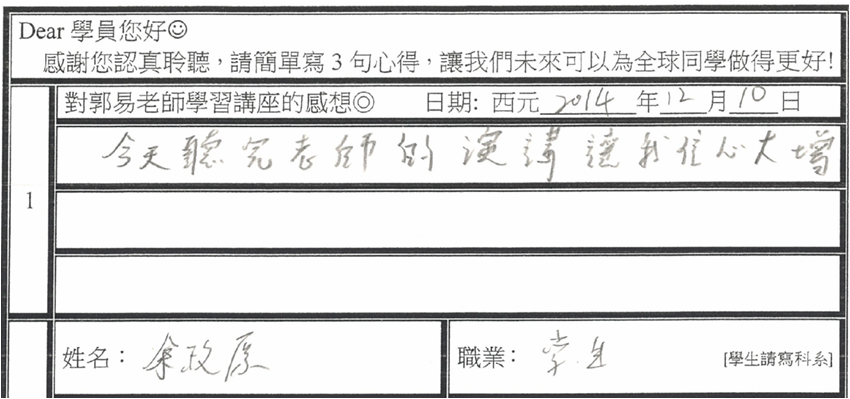 Dear 學員您好☺
感謝您認真聆聽，請簡單寫 3 句心得，讓我們未來可以為全球同學做得更好!
1
對郭易老師學習講座的感想◎ 日期: 西元 2014 年 12 月 10 日
今天聽完老師的演講讓我信心大增
姓名： 余政原
職業： 学生 [學生請寫科系]